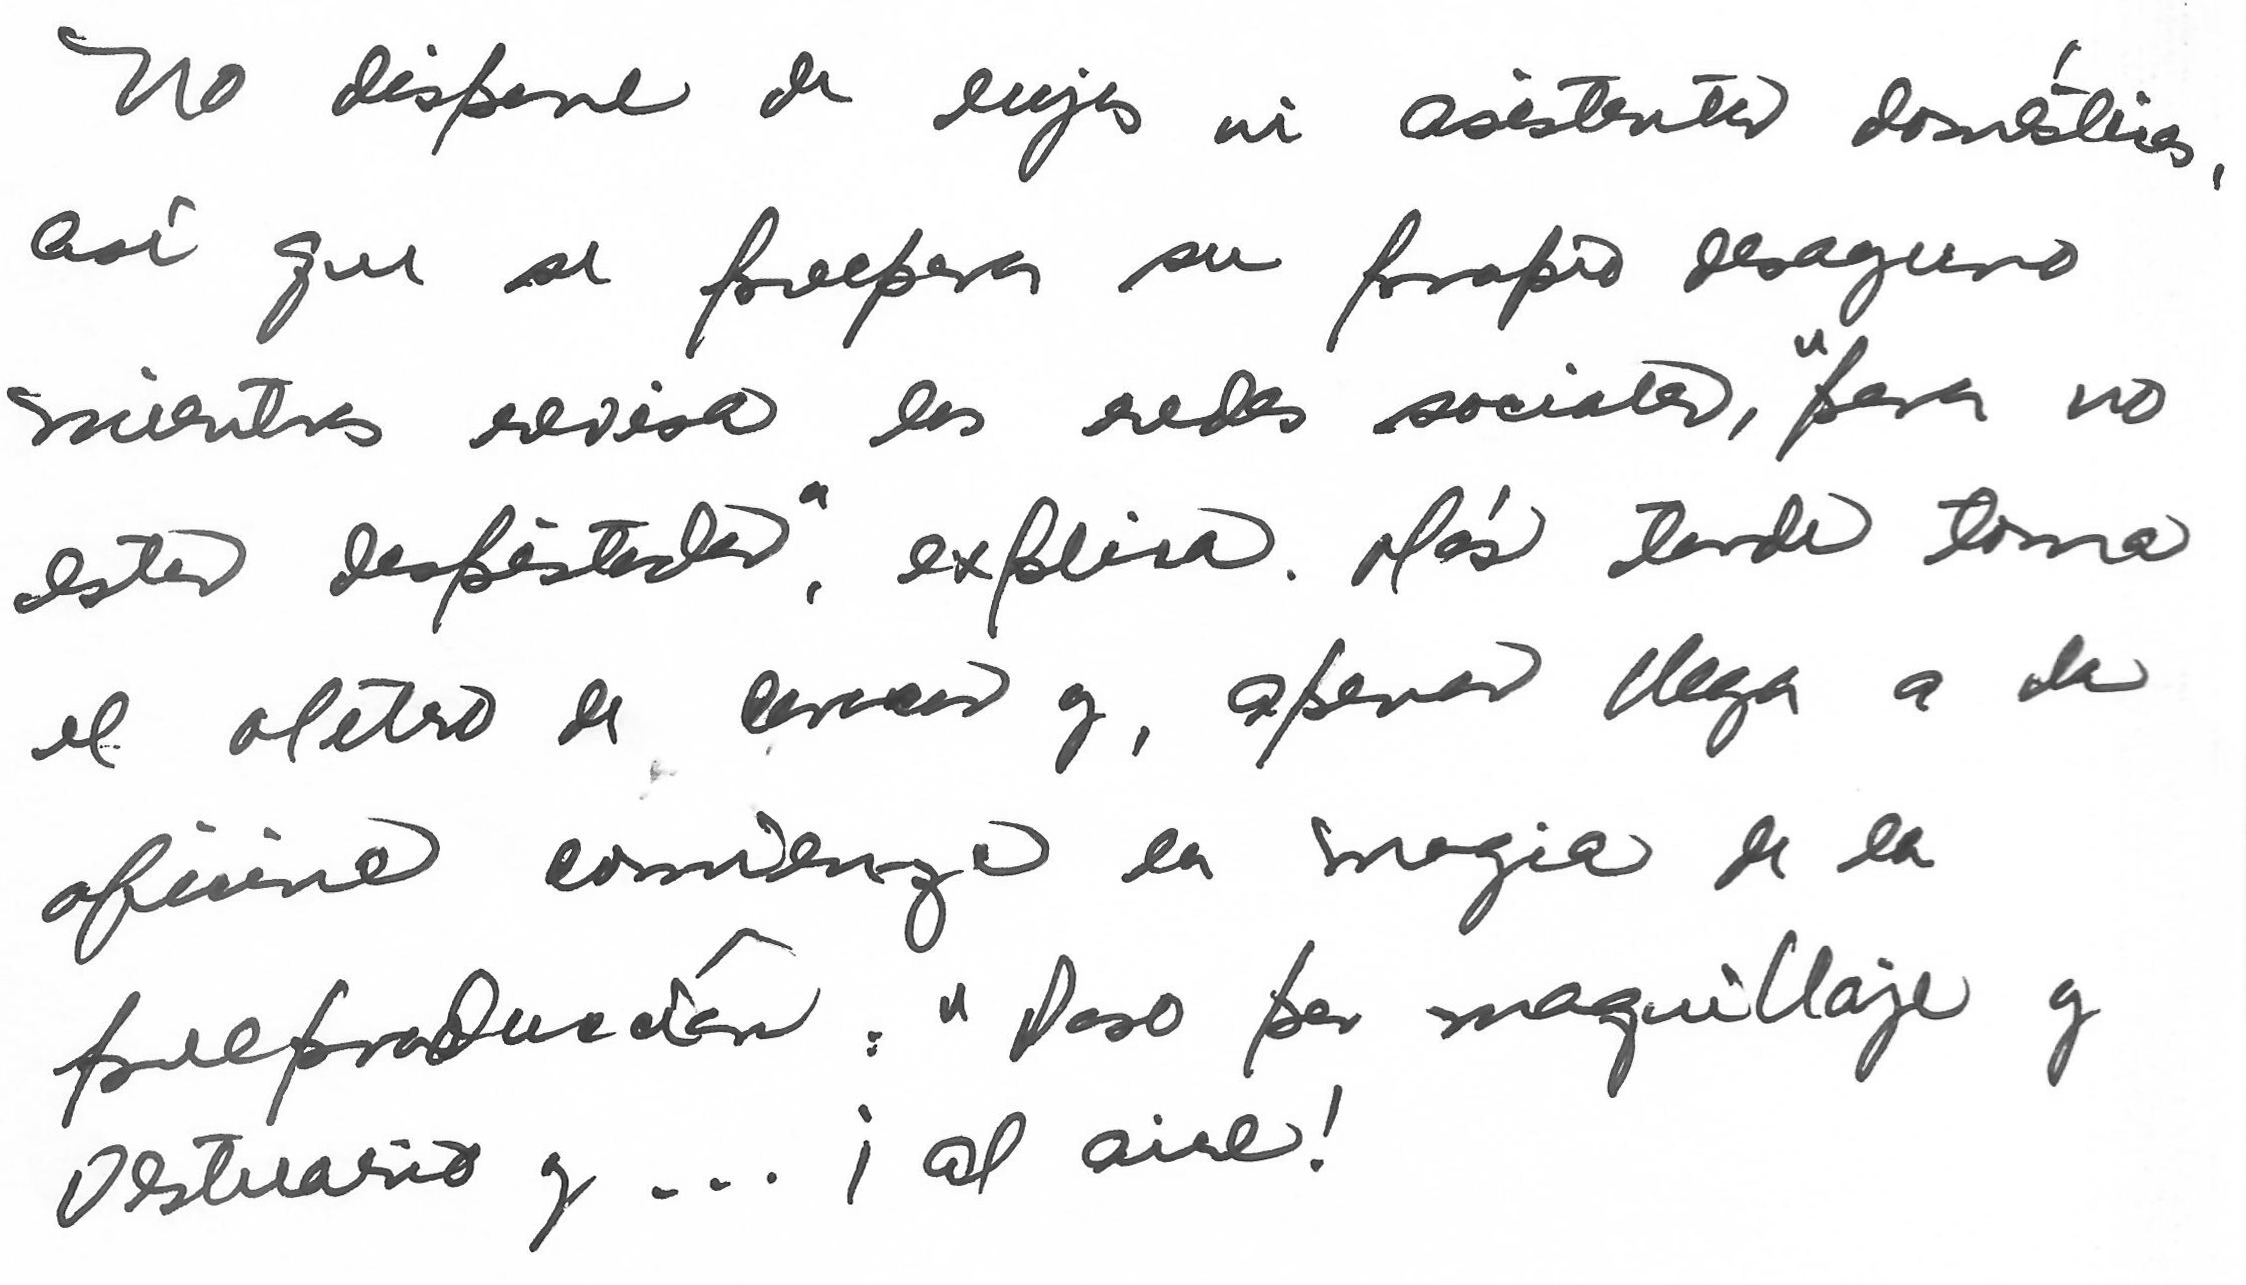 No dispone de lujos ni asistentes domésticos,
así que se prepara su propio desayuno
mientras revisa las redes sociales, "para no
estar despistada", explica. Más tarde toma
el Metro de Caracas y, apenas llega a la
oficina comienza la magia de la
preproducción: "Paso por maquillaje y
vestuario y... ¡al aire!